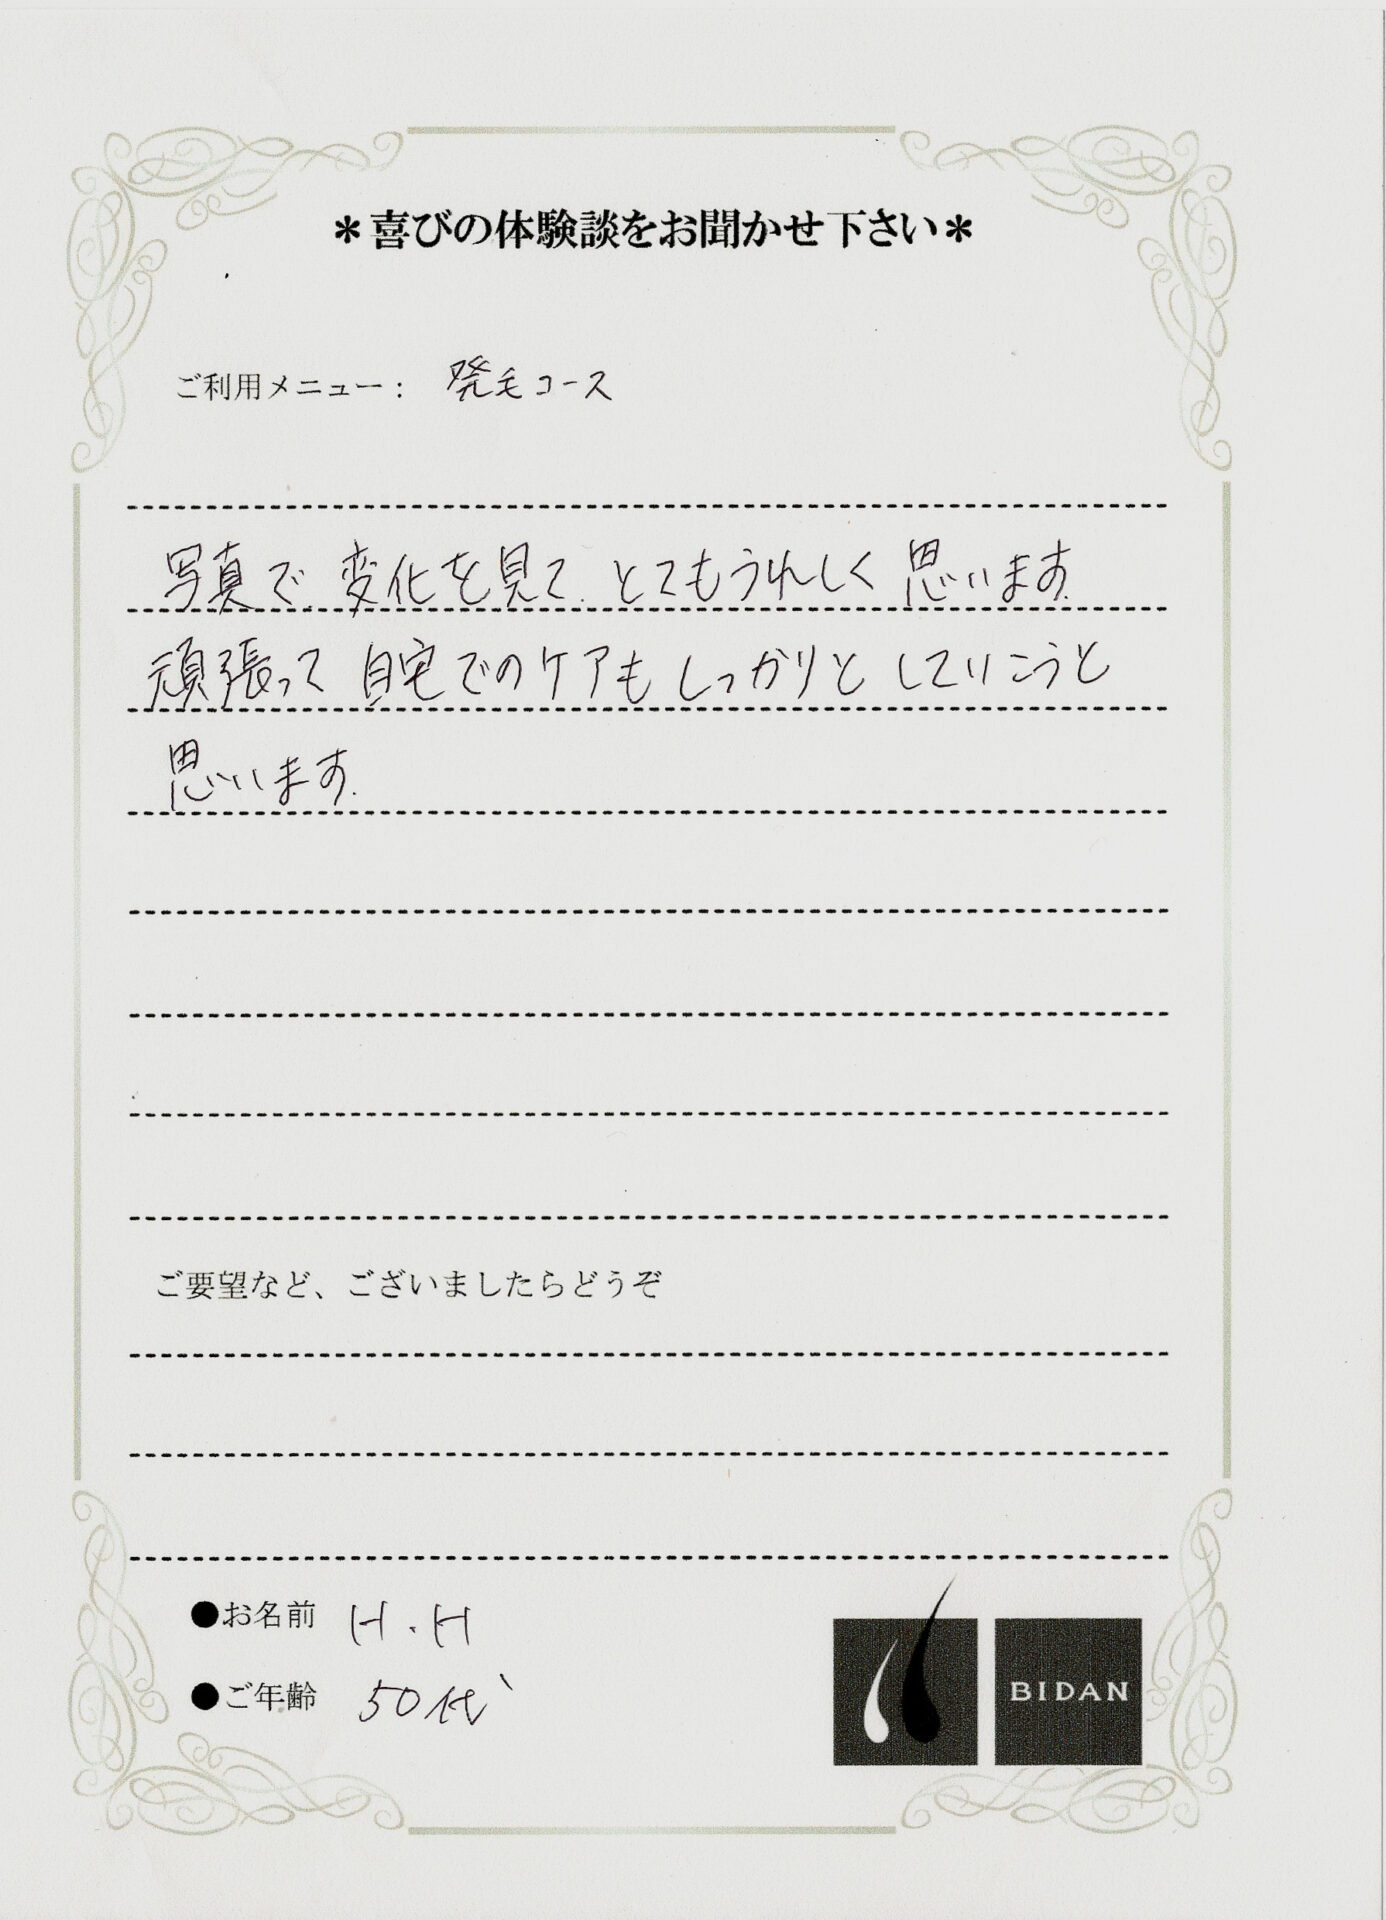 ＊喜びの体験談をお聞かせ下さい＊
ご利用メニュー： 発毛コース
写真で、変化を見て、とてもうれしく思います。
頑張って 自宅でのケアもしっかりと していこうと
思います。
ご要望など、ございましたらどうぞ
●お名前 H.H
●ご年齢 50代
BIDAN